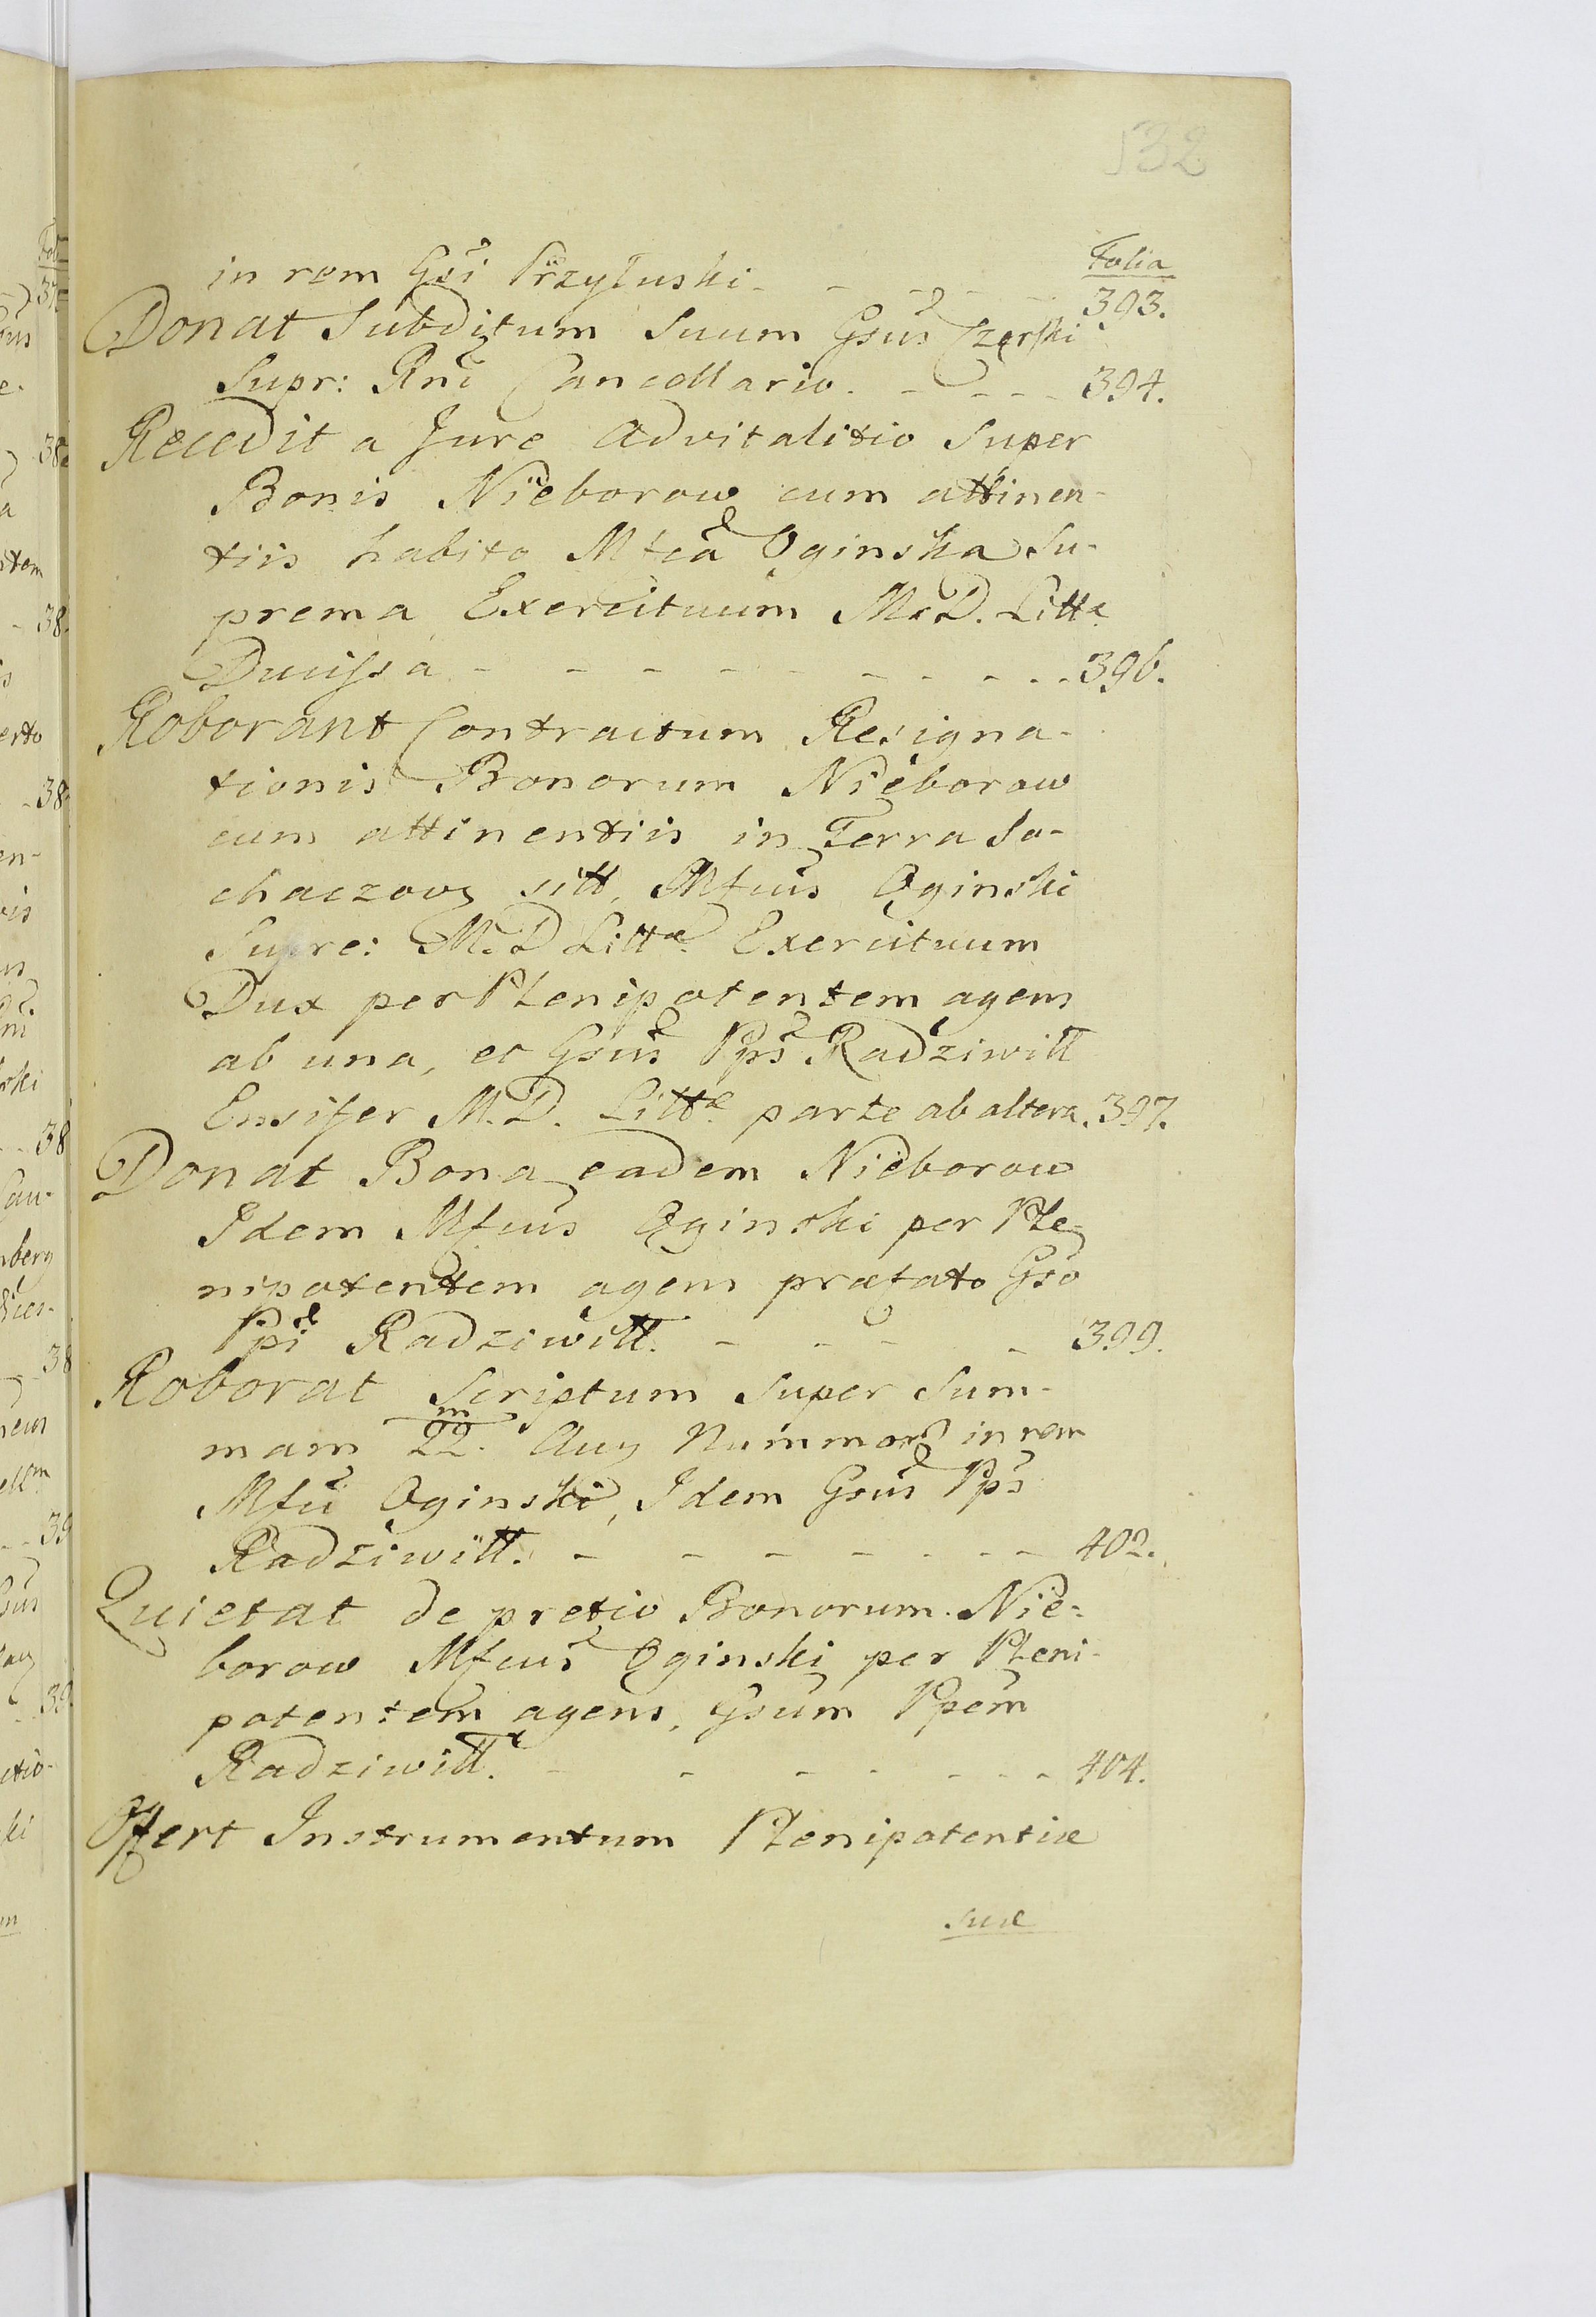 532
Folia
in rem Gsi Przyłuski - - - - - 393.
Donat Subditum Suum Gsus Czerski
Supr: Rni Cancellario. - - - - 394.
Recedit a Jure Advitalitio Super
Bonis Nieborow cum attinen-
tiis habito Mfca Oginska Su-
prema Exercituum M. D. Littæ
Ducissa - - - - - - - - - 396.
Roborant Contractum Resigna-
tionis Bonorum Nieborow
cum attinentiis in Terra So-
chaczov sitt, Mfcus Oginski
Supre: M. D Littæ Exercituum
Dux per Plenipotentem agens
ab una, et Gsus Pps Radziwiłł
Ensifer M. D. Littæ parte ab altera. 397.
Donat Bona eadem Nieborow
Idem Mfcus Oginski per Ple-
nipotentem agens præfato Gso
Ppi Radziwiłł. - - - - 399.
Roborat Scriptum Super Sum-
mam 22.m Aur Nummor in rem
Mfci Oginski, Idem Gsus Pps
Radziwiłł. - - - - - - - 402.
Quietat de pretio Bonorum Nie-
borow Mfcus Oginski per Pleni-
potentem agens, Gsum Ppem
Radziwiłł. - - - - - - - 404.
Offert Instrumentum Plenipotentiæ
suæ